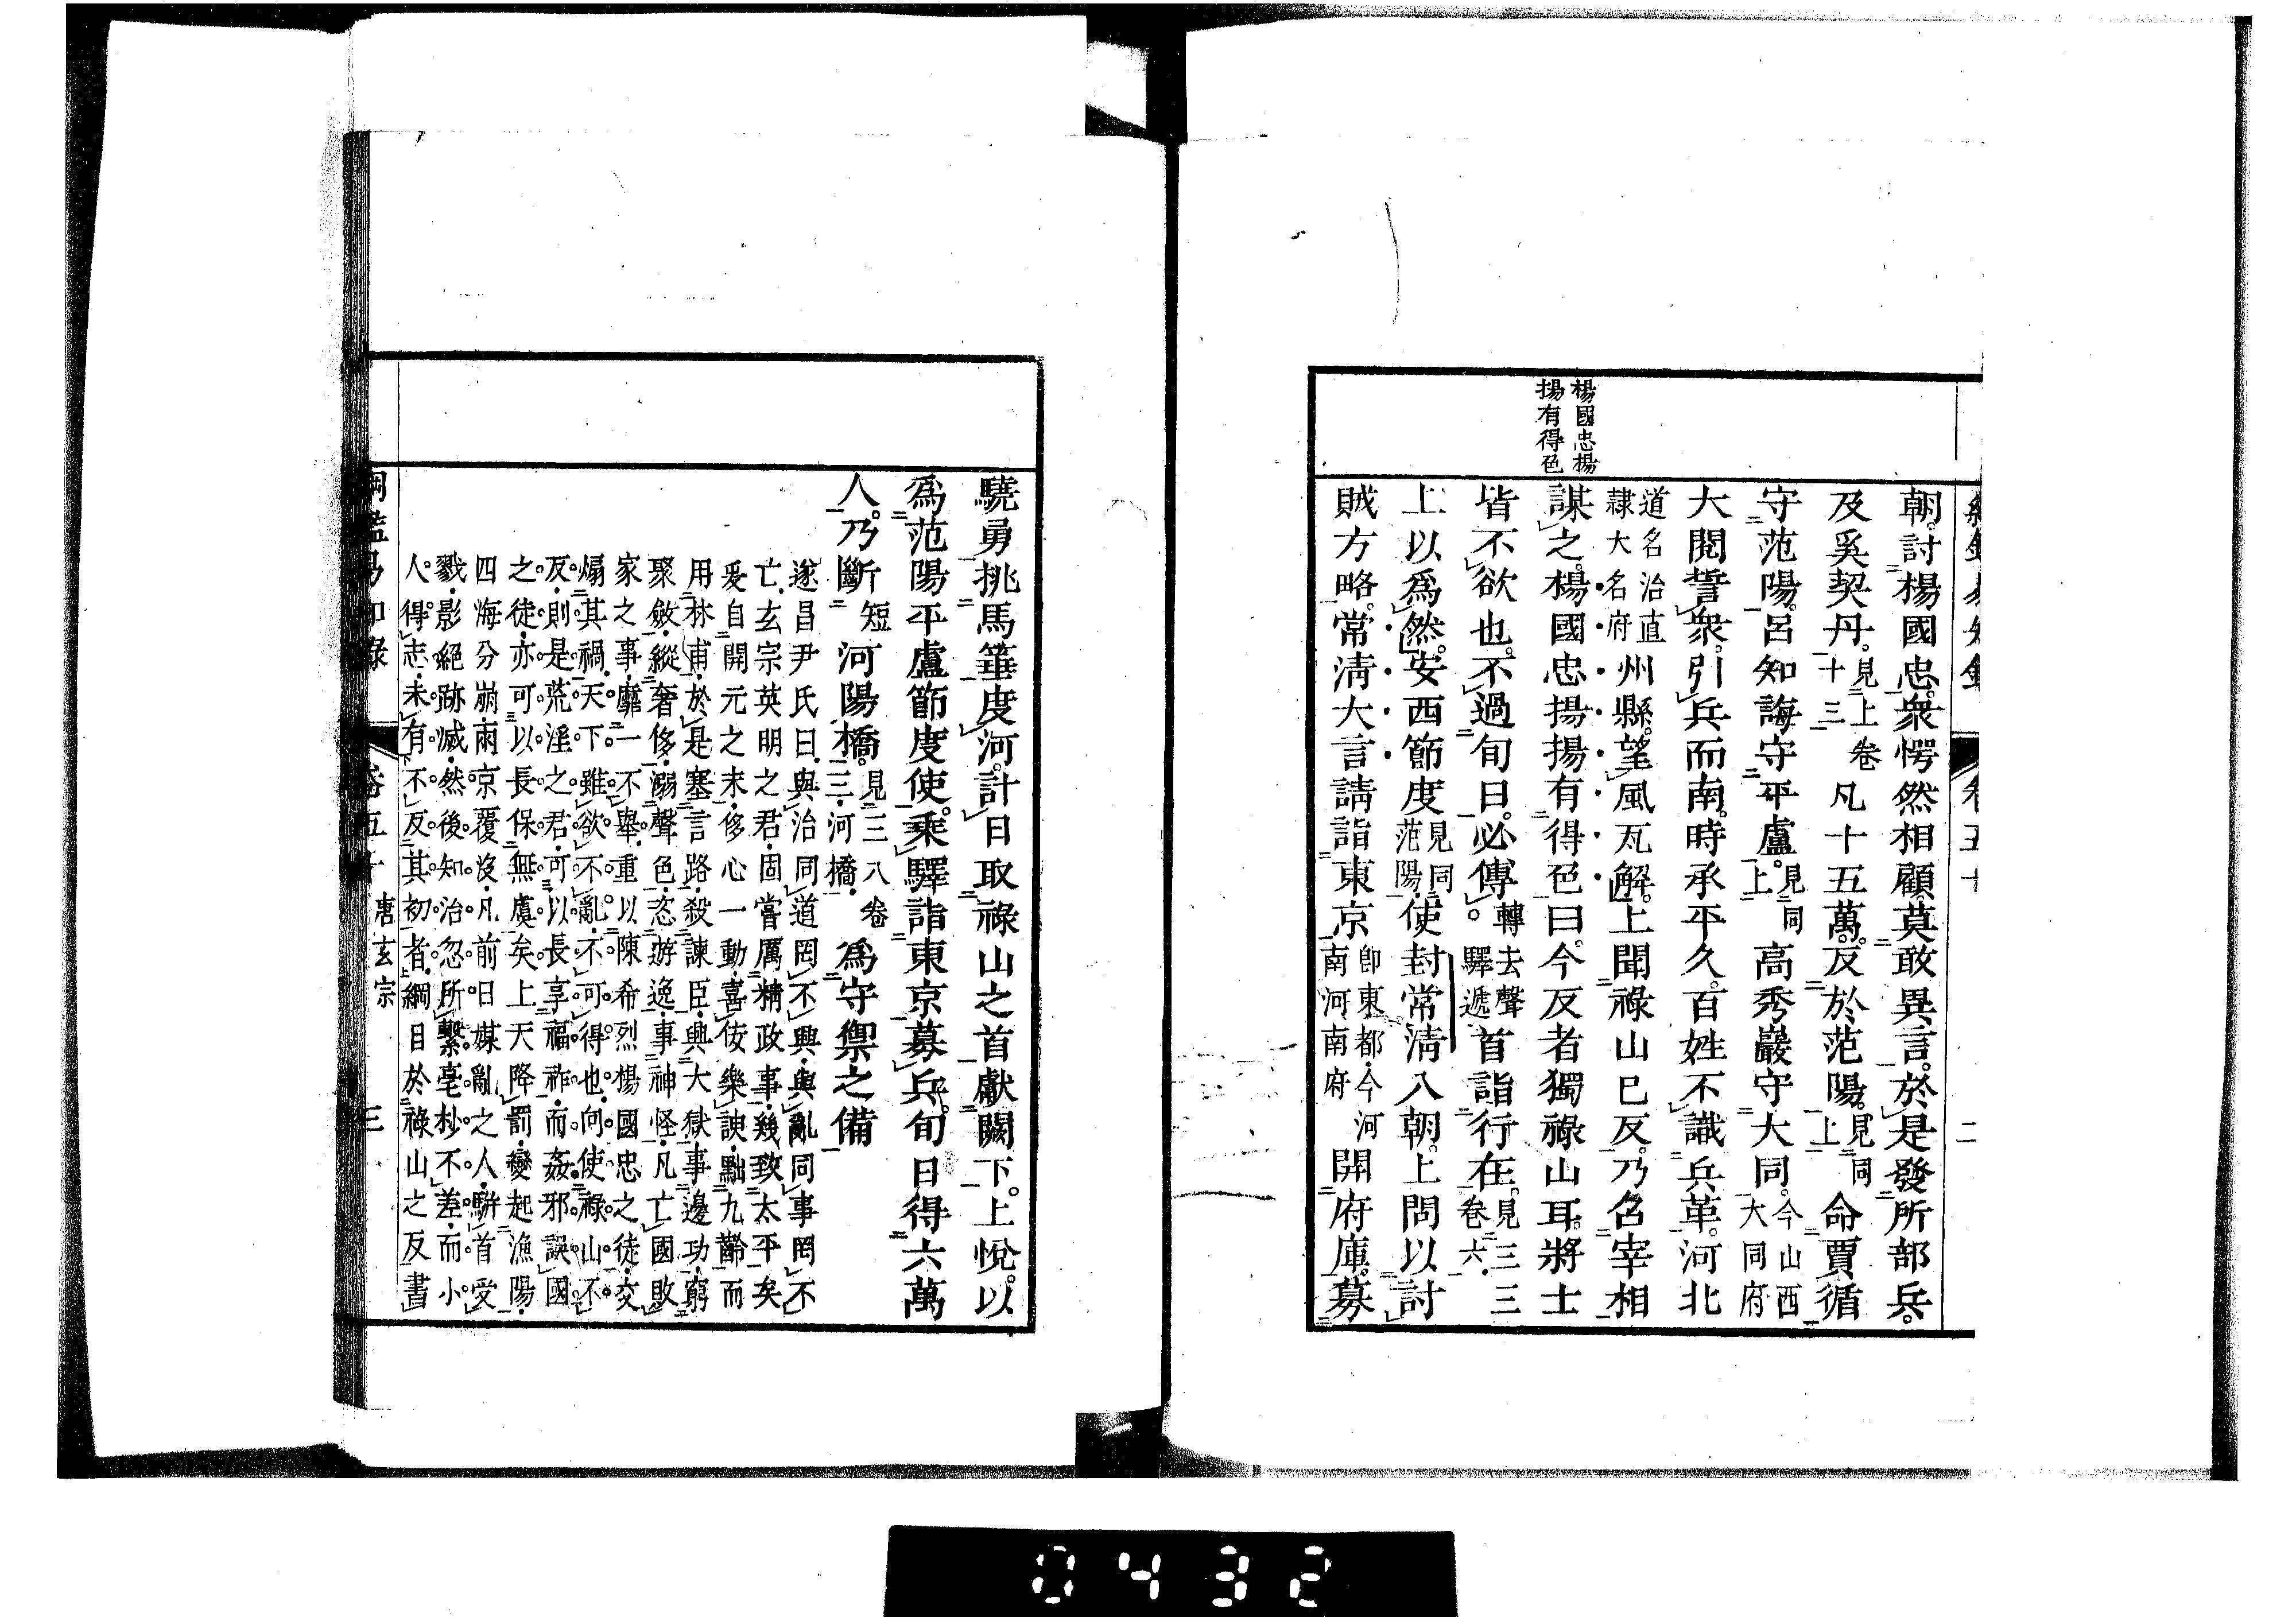 綱鑑易知錄 卷五十 二
楊國忠揚
揚有得色
朝。討楊國忠。衆愕然相顧。莫敢異言。於是發所部兵。
及奚契丹。見上卷十三凡十五萬。反於范陽。見同上命賈循
守范陽。呂知誨守平盧。見同上高秀巖守大同。今山西大同府
大閱誓衆。引兵而南。時承平久。百姓不識兵革。河北
道名治直隷大名府州縣。望風瓦解。上聞祿山已反。乃召宰相
謀之。楊國忠揚揚有得色曰。今反者獨祿山耳。將士
皆不欲也。不過旬日。必傳。轉去聲驛遞首詣行在。見三三卷六
上以爲然。安西節度見同范陽使封常淸入朝。上問以討
賊方略。常淸大言請詣東京卽東都今河南河南府開府庫。募
驍勇挑馬箠度河。計日取祿山之首獻闕下。上悅。以
爲范陽平盧節度使。乘驛詣東京募兵。旬日得六萬
人。乃斷短河陽橋。見三八卷三河橋爲守禦之備
遂昌尹氏曰、與治同道罔不興、與亂同事罔不
亡、玄宗英明之君、固嘗厲精政事、幾致太平矣、
爰自開元之末、侈心一動、喜佞樂諛、黜九齡而
用林甫、於是塞言路、殺諫臣、興大獄、事邊功、窮
聚斂、縱奢侈、溺聲色、恣遊逸、事神怪、凡亡國敗
家之事、靡一不舉、重以陳希烈楊國忠之徒、交
煽其禍、天下雖欲不亂、不可得也、向使祿山不
反、則是荒淫之君、可以長享福祚、而姦邪誤國
之徒、亦可以長保無虞矣、上天降罰、變起漁陽、
四海分崩、兩京覆沒、凡前日媒亂之人、駢首受
戮、影絕跡滅、然後知治忽所繫、毫杪不差、而小
人得志、未有不反其初者、綱目於祿山之反、書
綱鑑易知錄 卷五十 唐玄宗 三
0432